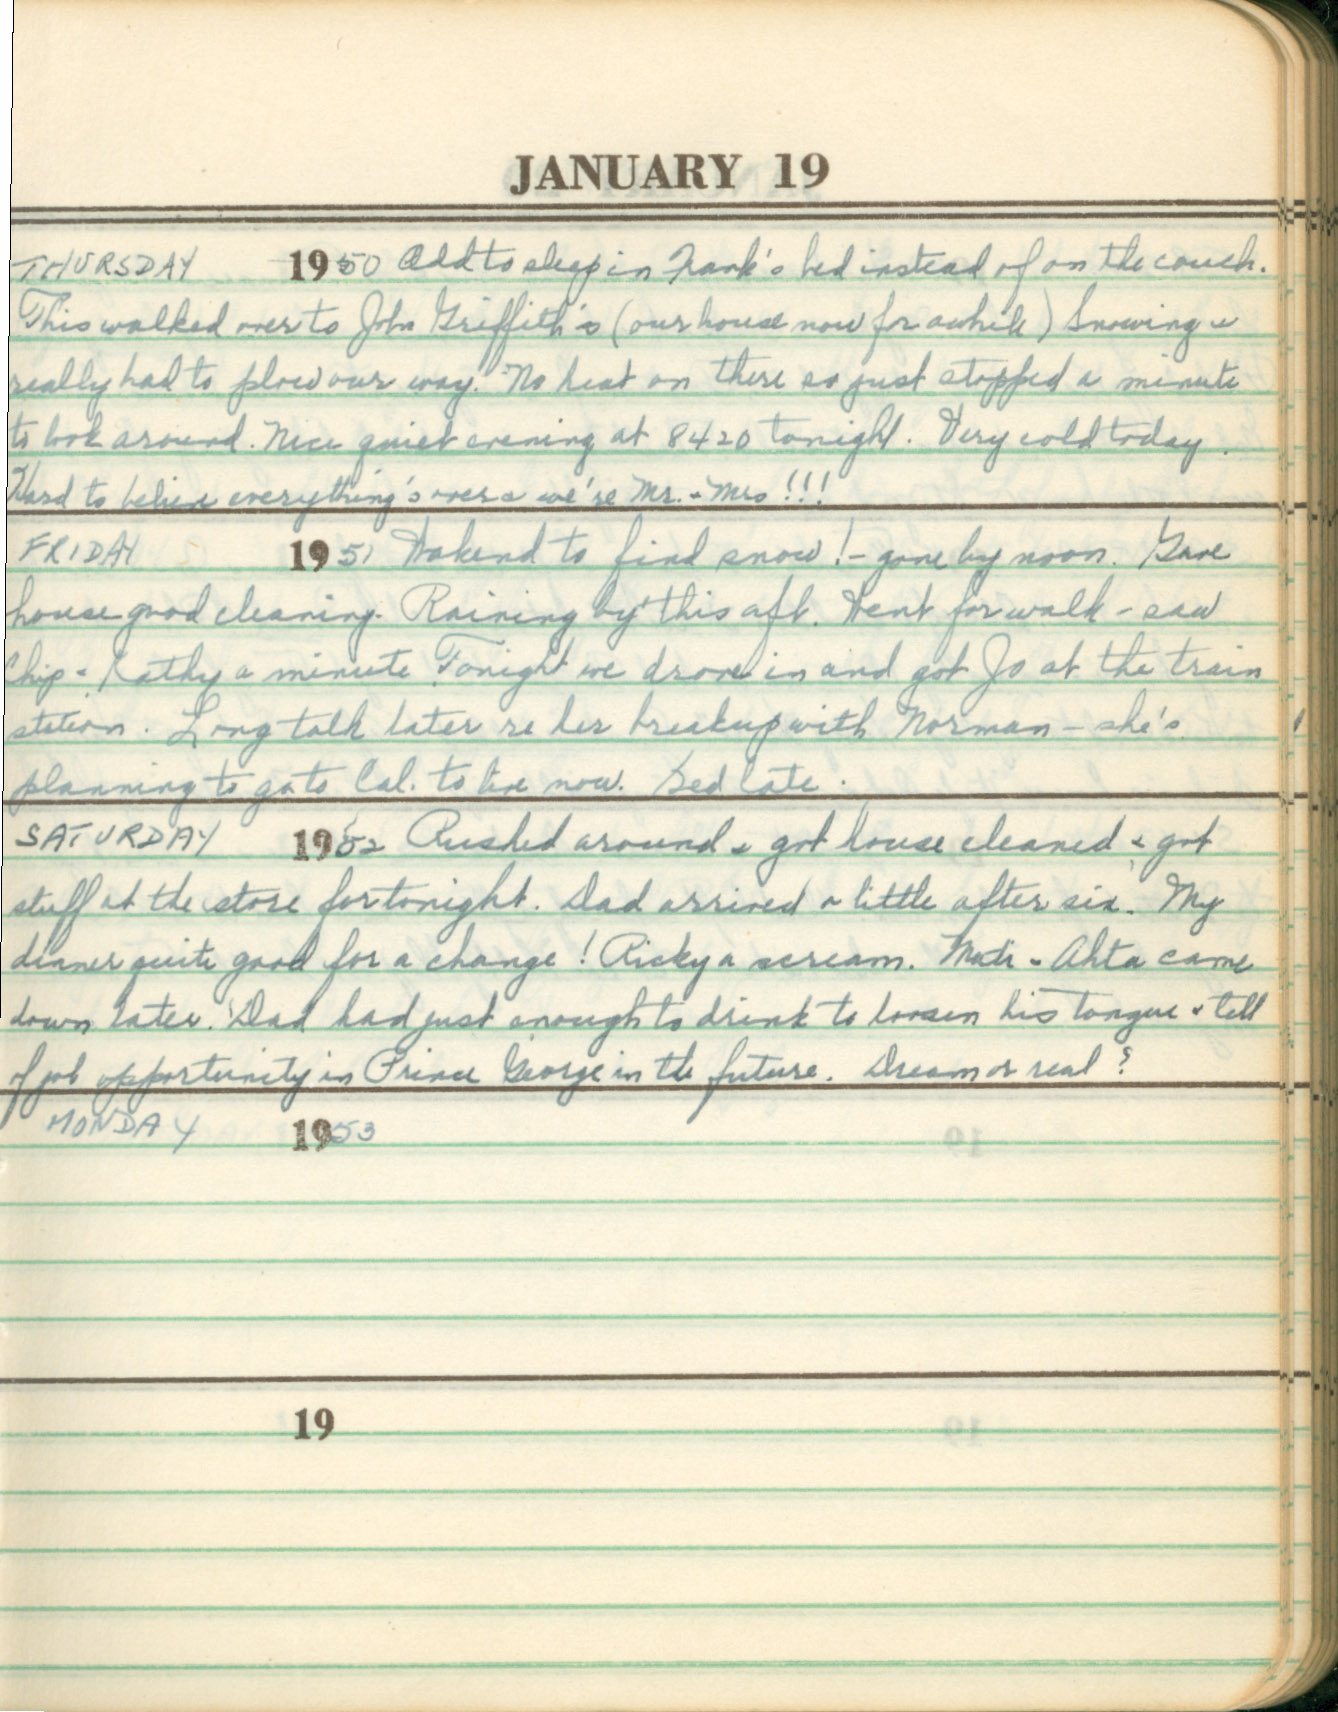 JANUARY 19
THURSDAY 1950 Odd to sleep in Frank's bed instead of on the couch.
This walked over to John Griffith's (our house now for awhile) Snowing &
really had to plow our way. No heat on there so just stopped a minute
to look around. Nice quiet evening at 8420 tonight. Very cold today.
Hard to believe everything's over & we're Mr. & Mrs!!!
FRIDAY 1951 Wakend to find snow! - gone by noon. Gave
house good cleaning. Raining by this aft. Went for walk - saw
Chip & Kathy a minute Tonight we drove in and got Jo at the train
station. Long talk later re her breakup with Norman - she's
planning to go to Cal. to live now. Bed late.
SATURDAY 1952 Rushed around & got house cleaned & got
stuff at the store for tonight. Dad arrived a little after six. My
dinner quite good for a change! Ricky a scream. & Ahta came
down later. Dad had just enough to drink to loosen his tongue & tell
of job opportunity in Prince George in the future. Dream or real?
MONDAY 1953
19